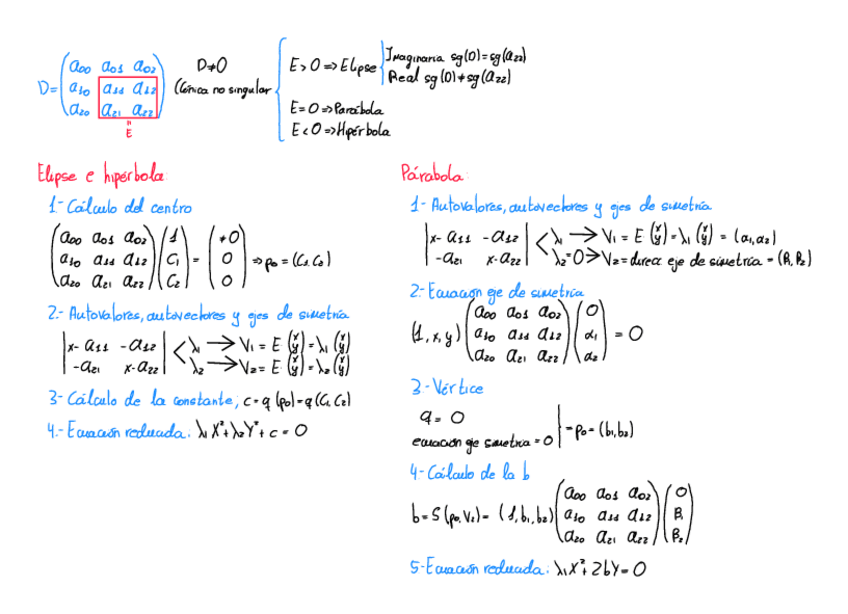 D = (a00 a01 a02 / a10 a11 a12 / a20 a21 a22)
E
D≠0
(Cónica no singular
E > 0 => Elipse
Imaginaria sg(D)=sg(a22)
Real sg(D)≠sg(a22)
E = 0 => Parábola
E < 0 => Hipérbola
Elipse e hipérbola
1- Cálculo del centro
(a00 a01 a02 / a10 a11 a12 / a20 a21 a22) (1 / C1 / C2) = (≠0 / 0 / 0) => po = (C1 C2)
2.- Autovalores, autovectores y ejes de simetría
|x- a11 -a12 / -a21 x-a22| < λ1 → V1 = E (x / y) = λ1 (x / y)
λ2 → V2 = E (x / y) = λ2 (x / y)
3- Cálculo de la constante, c = q (po) = q (C1 C2)
4.- Ecuación reducida: λ1X²+λ2Y²+ c = 0
Párabola:
1- Autovalores, autovectores y ejes de simetría
|x- a11 -a12 / -a21 x-a22| < λ1 → V1 = E (x / y) = λ1 (x / y) = (α1, α2)
λ2=0 → V2 = direcc eje de simetría = (β1 β2)
2.- Ecuación eje de simetría
(1, x, y) (a00 a01 a02 / a10 a11 a12 / a20 a21 a22) (0 / α1 / α2) = 0
3-Vértice
q = 0
ecuación eje simetría = 0
= po = (b1, b2)
4- Cálculo de la b
b = S (po, V2) = (1, b1, b2) (a00 a01 a02 / a10 a11 a12 / a20 a21 a22) (0 / β1 / β2)
5-Ecuación reducida: λ1X²+ 2bY = 0